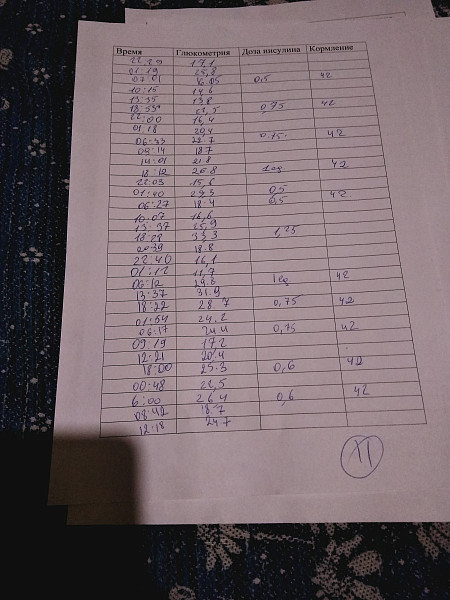 Время Глюкометрия Доза инсулина Кормление
22:29 17,1
01:19 25,8
07:01 16.05 0,5 42
10:15 14,6
13:35 13.8
18:53 22,5 0,75 42
22:00 16,4
01:18 20,4
06:33 28.7 0,75 42
09:14 18.7
14:01 21.8
18:12 26.8 1 ед 42
22:03 15,6
01:40 23,3 0,5
06:27 18.4 0,5 42
10:07 16,6
13:37 25,9
18:28 33,3 1,25
20:39 18.8
22:40 16,1
01:12 11,7
06:12 29.8 1 ед 42
13:37 31,9
18:22 28.7 0,75 42
01:54 24,2
06:17 24,4 0,75 42
09:19 17,2
12:21 20,4
18:00 25.3 0,6 42
00:48 22,5
6:00 26.4 0,6 42
08:42 18.7
12:18 24.7